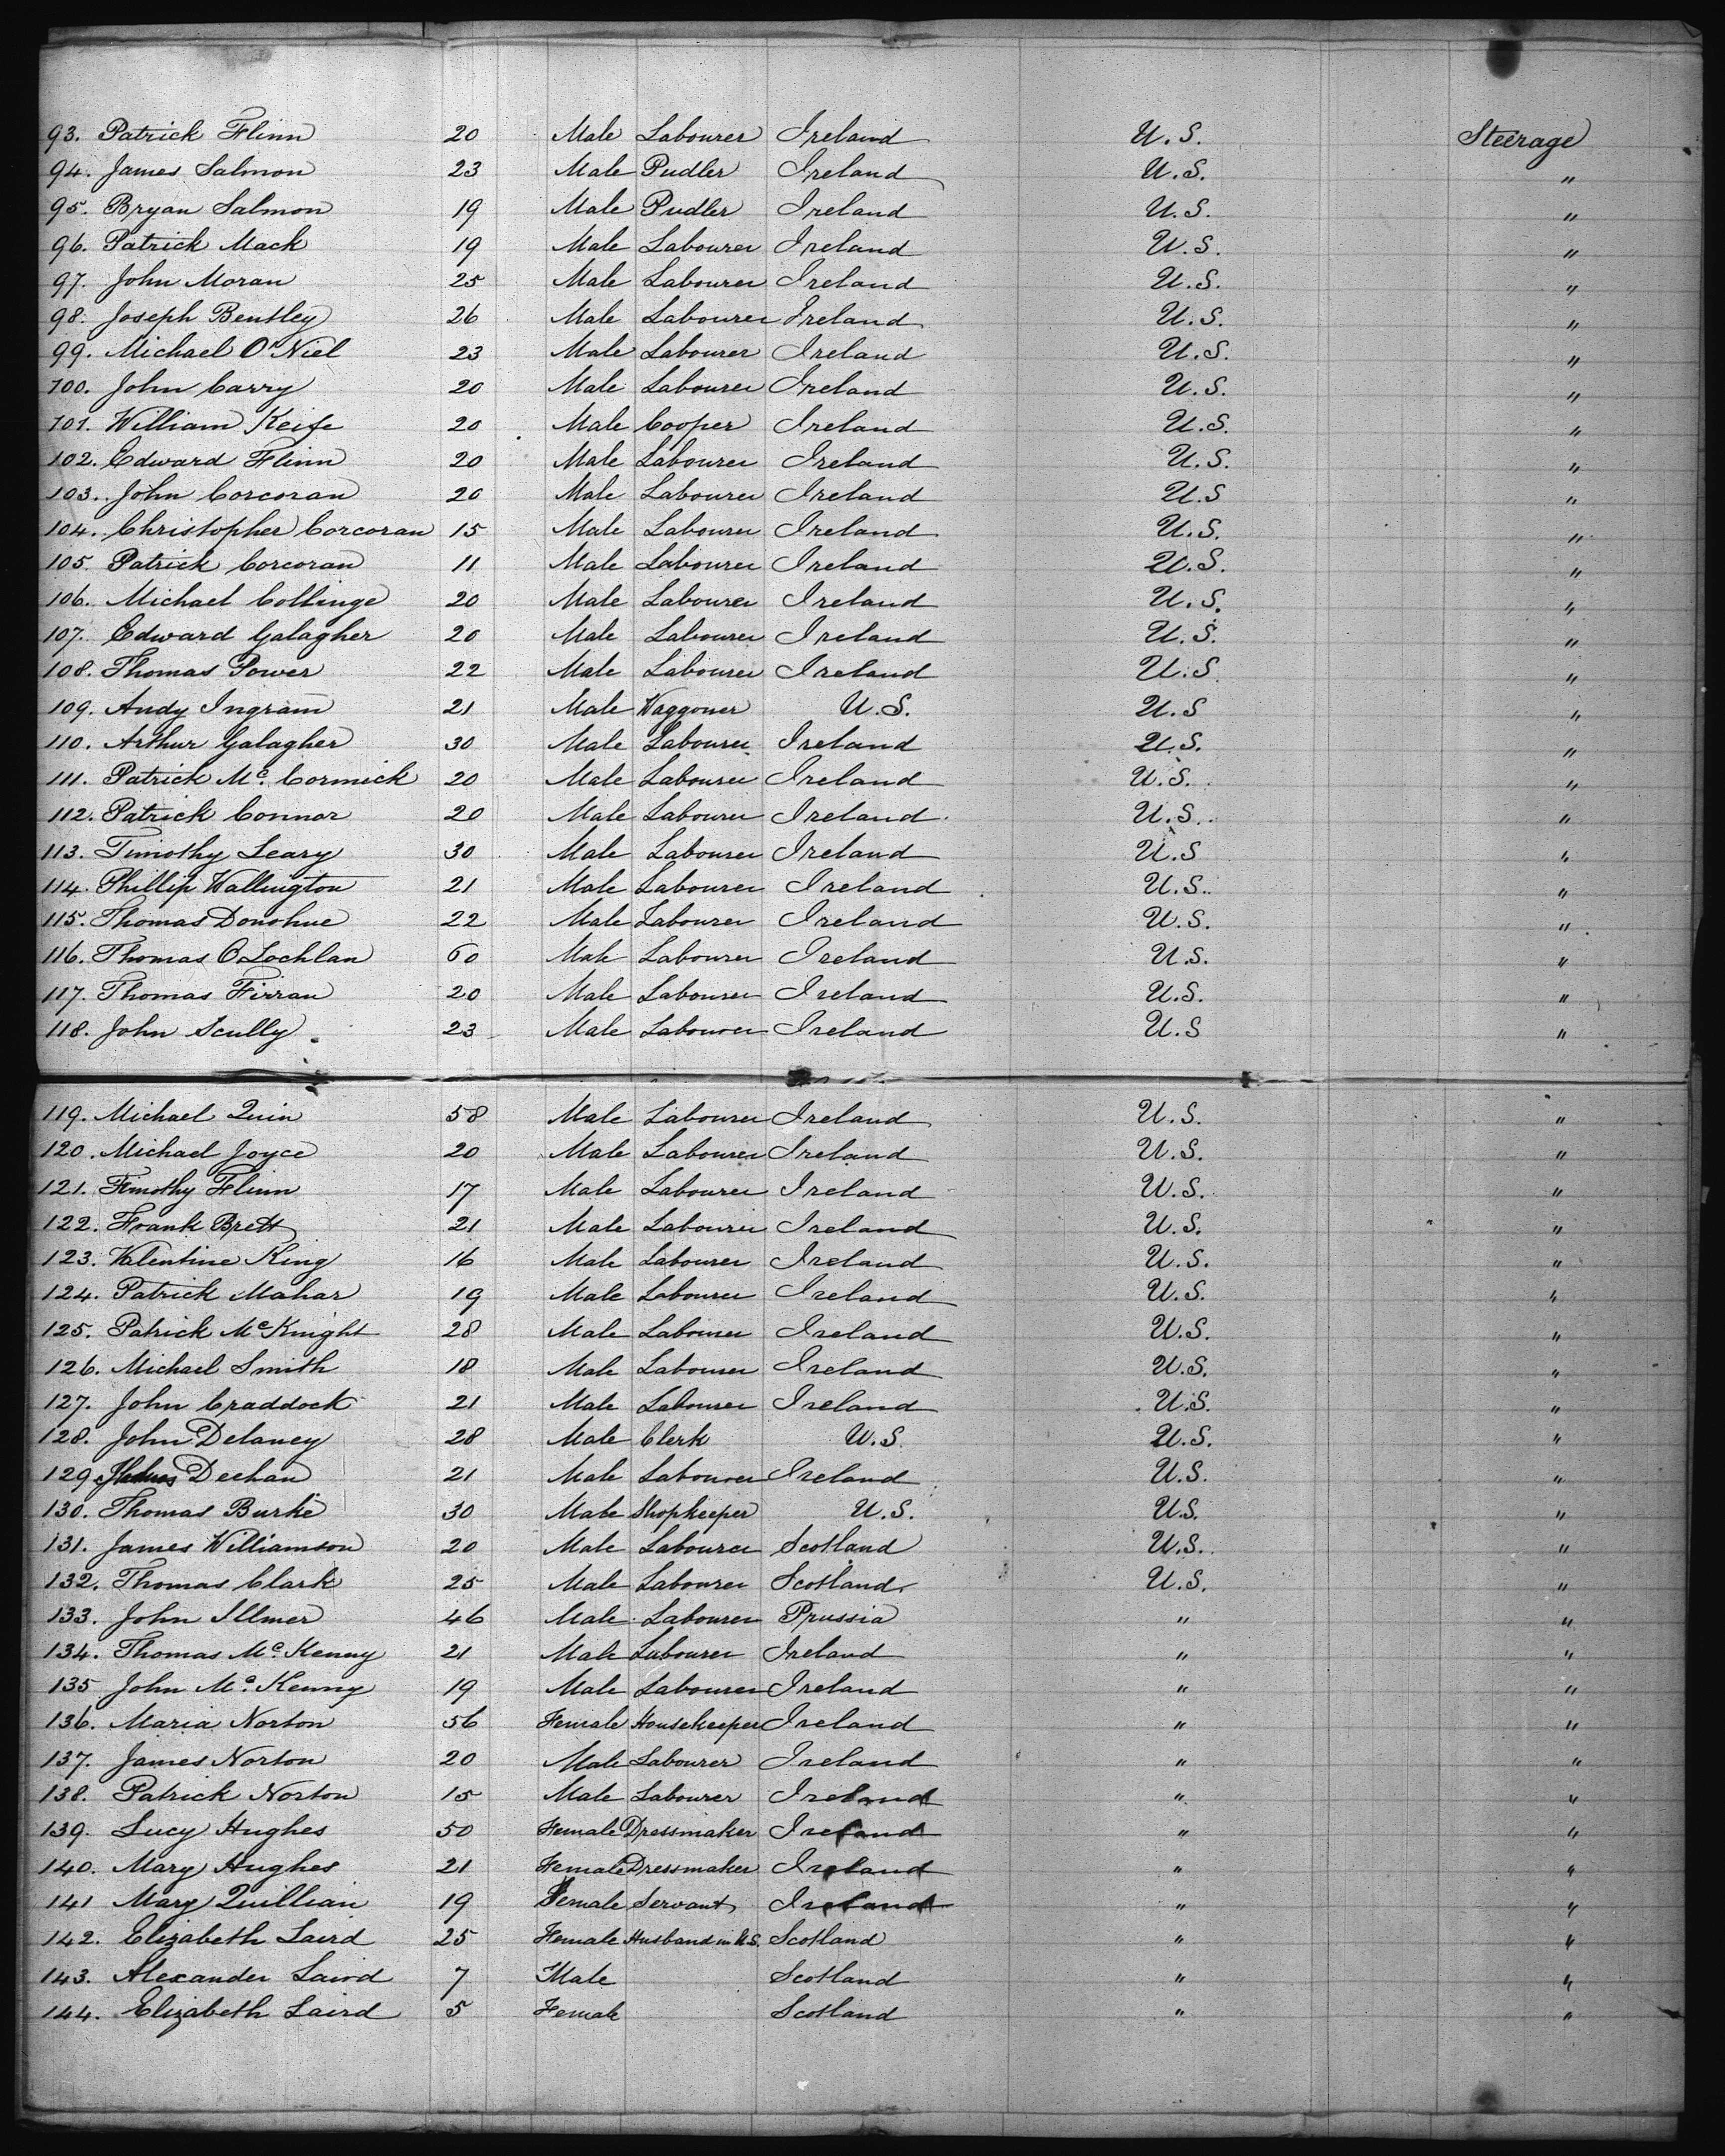 93. Patrick Flinn 20 Male Labourer Ireland U.S. Steerage
94. James Salmon 23 Male Pudler Ireland U.S. "
95. Bryan Salmon 19 Male Pudler Ireland U.S. "
96. Patrick Mack 19 Male Labourer Ireland U.S. "
97. John Moran 25 Male Labourer Ireland U.S. "
98. Joseph Bentley 26 Male Labourer Ireland U.S. "
99. Michael O'Niel 23 Male Labourer Ireland U.S. "
100. John Carry 20 Male Labourer Ireland U.S. "
101. William Keife 20 Male Cooper Ireland U.S. "
102. Edward Flinn 20 Male Labourer Ireland U.S. "
103. John Corcoran 20 Male Labourer Ireland U.S "
104. Christopher Corcoran 15 Male Labourer Ireland U.S. "
105. Patrick Corcoran 11 Male Labourer Ireland U.S. "
106. Michael Collinge 20 Male Labourer Ireland U.S. "
107. Edward Galagher 20 Male Labourer Ireland U.S. "
108. Thomas Power 22 Male Labourer Ireland U.S. "
109. Andy Ingram 21 Male Waggoner U.S. U.S "
110. Arthur Galagher 30 Male Labourer Ireland U.S. "
111. Patrick Mc. Cormick 20 Male Labourer Ireland U.S. "
112. Patrick Connor 20 Male Labourer Ireland U.S. "
113. Timothy Leary 30 Male Labourer Ireland U.S "
114. Phillip Wallington 21 Male Labourer Ireland U.S. "
115. Thomas Donohue 22 Male Labourer Ireland U.S. "
116. Thomas O Lochlan 60 Male Labourer Ireland U.S. "
117. Thomas Firran 20 Male Labourer Ireland U.S. "
118. John Scully 23 Male Labourer Ireland U.S "
119. Michael Quin 58 Male Labourer Ireland U.S. "
120. Michael Joyce 20 Male Labourer Ireland U.S. "
121. Timothy Flinn 17 Male Labourer Ireland U.S. "
122. Frank Brett 21 Male Labourer Ireland U.S. "
123. Valentine King 16 Male Labourer Ireland U.S. "
124. Patrick Mahar 19 Male Labourer Ireland U.S. "
125. Patrick Mc Knight 28 Male Labourer Ireland U.S. "
126. Michael Smith 18 Male Labourer Ireland U.S. "
127. John Craddock 21 Male Labourer Ireland U.S. "
128. John Delaney 28 Male Clerk U.S. U.S. "
129 Deehan 21 Male Labourer Ireland U.S. "
130. Thomas Burke 30 Male Shopkeeper U.S. U.S. "
131. James Williamson 20 Male Labourer Scotland U.S. "
132. Thomas Clark 25 Male Labourer Scotland U.S. "
133. John Illmer 46 Male Labourer Prussia " "
134. Thomas Mc. Kenny 21 Male Labourer Ireland " "
135 John Mc. Kenny 19 Male Labourer Ireland " "
136. Maria Norton 56 Female Housekeeper Ireland " "
137. James Norton 20 Male Labourer Ireland " "
138. Patrick Norton 15 Male Labourer Ireland " "
139. Lucy Hughes 50 Female Dressmaker Ireland " "
140. Mary Hughes 21 Female Dressmaker Ireland " "
141 Mary Quillian 19 Female Servant Ireland " "
142. Elizabeth Laird 25 Female Husband in U.S. Scotland " "
143. Alexander Laird 7 Male Scotland " "
144. Elizabeth Laird 5 Female Scotland " "